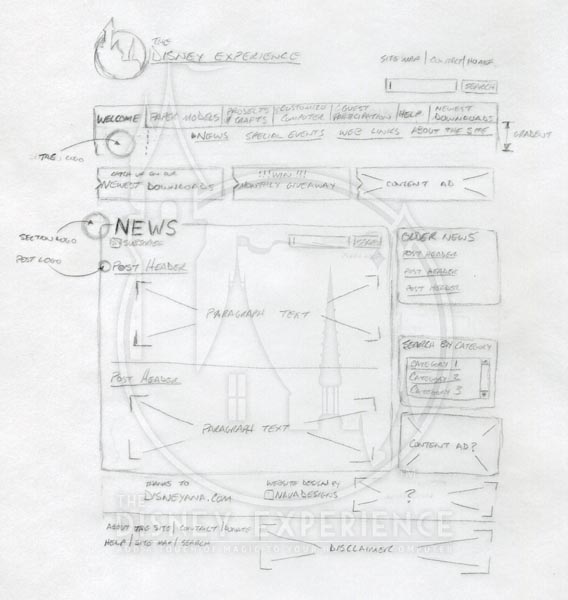 THE
DISNEY EXPERIENCE
SITE MAP | CONTACT | HOME
SEARCH
WELCOME | PAPER MODELS | PROJECTS & CRAFTS | CUSTOMIZE COMPUTER | GUEST PARTICIPATION | HELP | NEWEST DOWNLOADS
NEWS SPECIAL EVENTS WEB LINKS ABOUT THE SITE
GRADIENT
NEWEST DOWNLOADS
!!! WIN !!!
MONTHLY GIVEAWAY
CONTENT AD
SECTION LOGO
NEWS
SUBSCRIBE
SEARCH
POST LOGO
POST HEADER
PARAGRAPH TEXT
POST HEADER
PARAGRAPH TEXT
OLDER NEWS
POST HEADER
POST HEADER
POST HEADER
SEARCH BY CATEGORY
CATEGORY 1
CATEGORY 2
CATEGORY 3
CONTENT AD?
THANKS TO
DISNEYANA.COM
WEBSITE DESIGN BY
NAVADESIGNS
?
ABOUT THE SITE | CONTACT |
HELP | SITE MAP | SEARCH
DISCLAIMER
THE
DISNEY EXPERIENCE